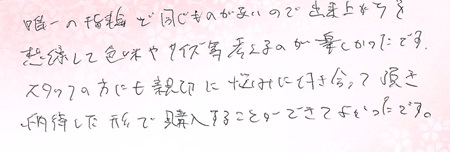 唯一の指輪で同じものが無いので出来上がりを
想像して色味やサイズ等考えるのが楽しかったです。
スタッフの方にも親切に悩みに付き合って頂き
納得した形で購入することができてよかったです。